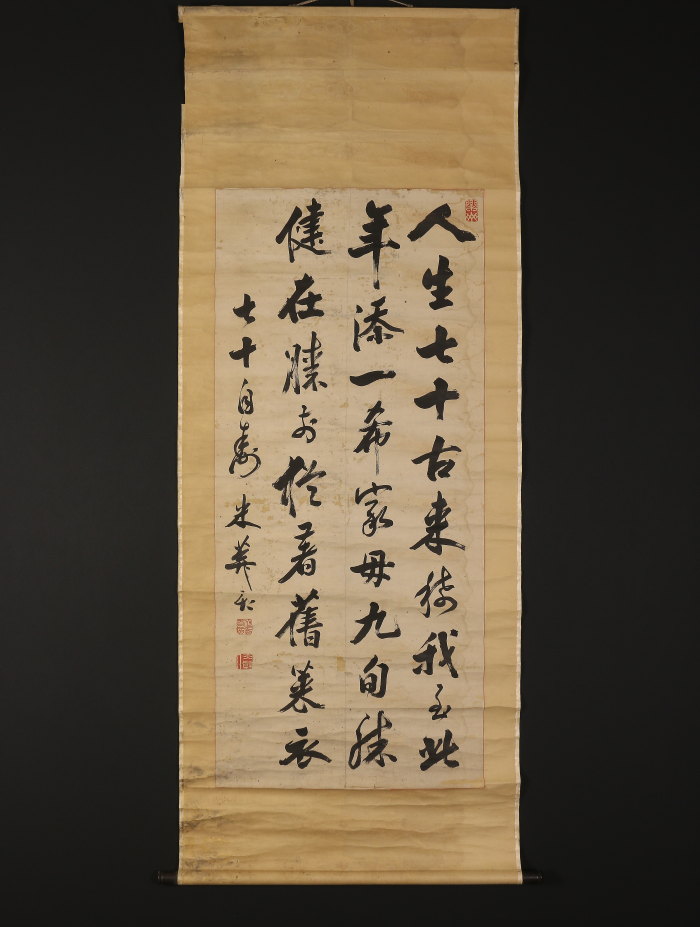 人生七十古来稀我至此
年添一希家母九旬
健在膝前著舊萊衣
七十自壽 米葊亥